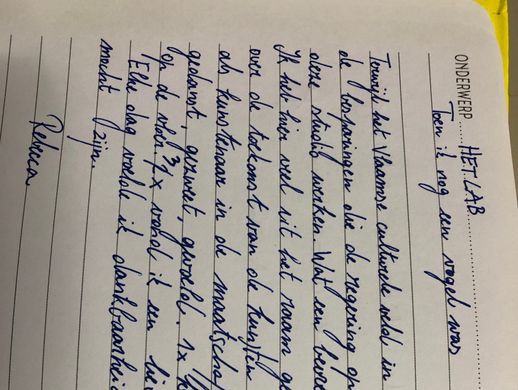 ONDERWERP HET LAB
Toen ik nog een vogel was
Terwijl het Vlaamse culturele veld in
de besparingen die de regering op
deze studio werken. Wat een bevo
Ik heb hier veel uit het raam ge
over de toekomst van de kunsten
als kunstenaar in de maatscha
gedanst, gezweet, gevoeld. 1x
Op de vloer, x vond ik een
Elke dag voelde ik dankbaarhei
mocht zijn.
Rebecca